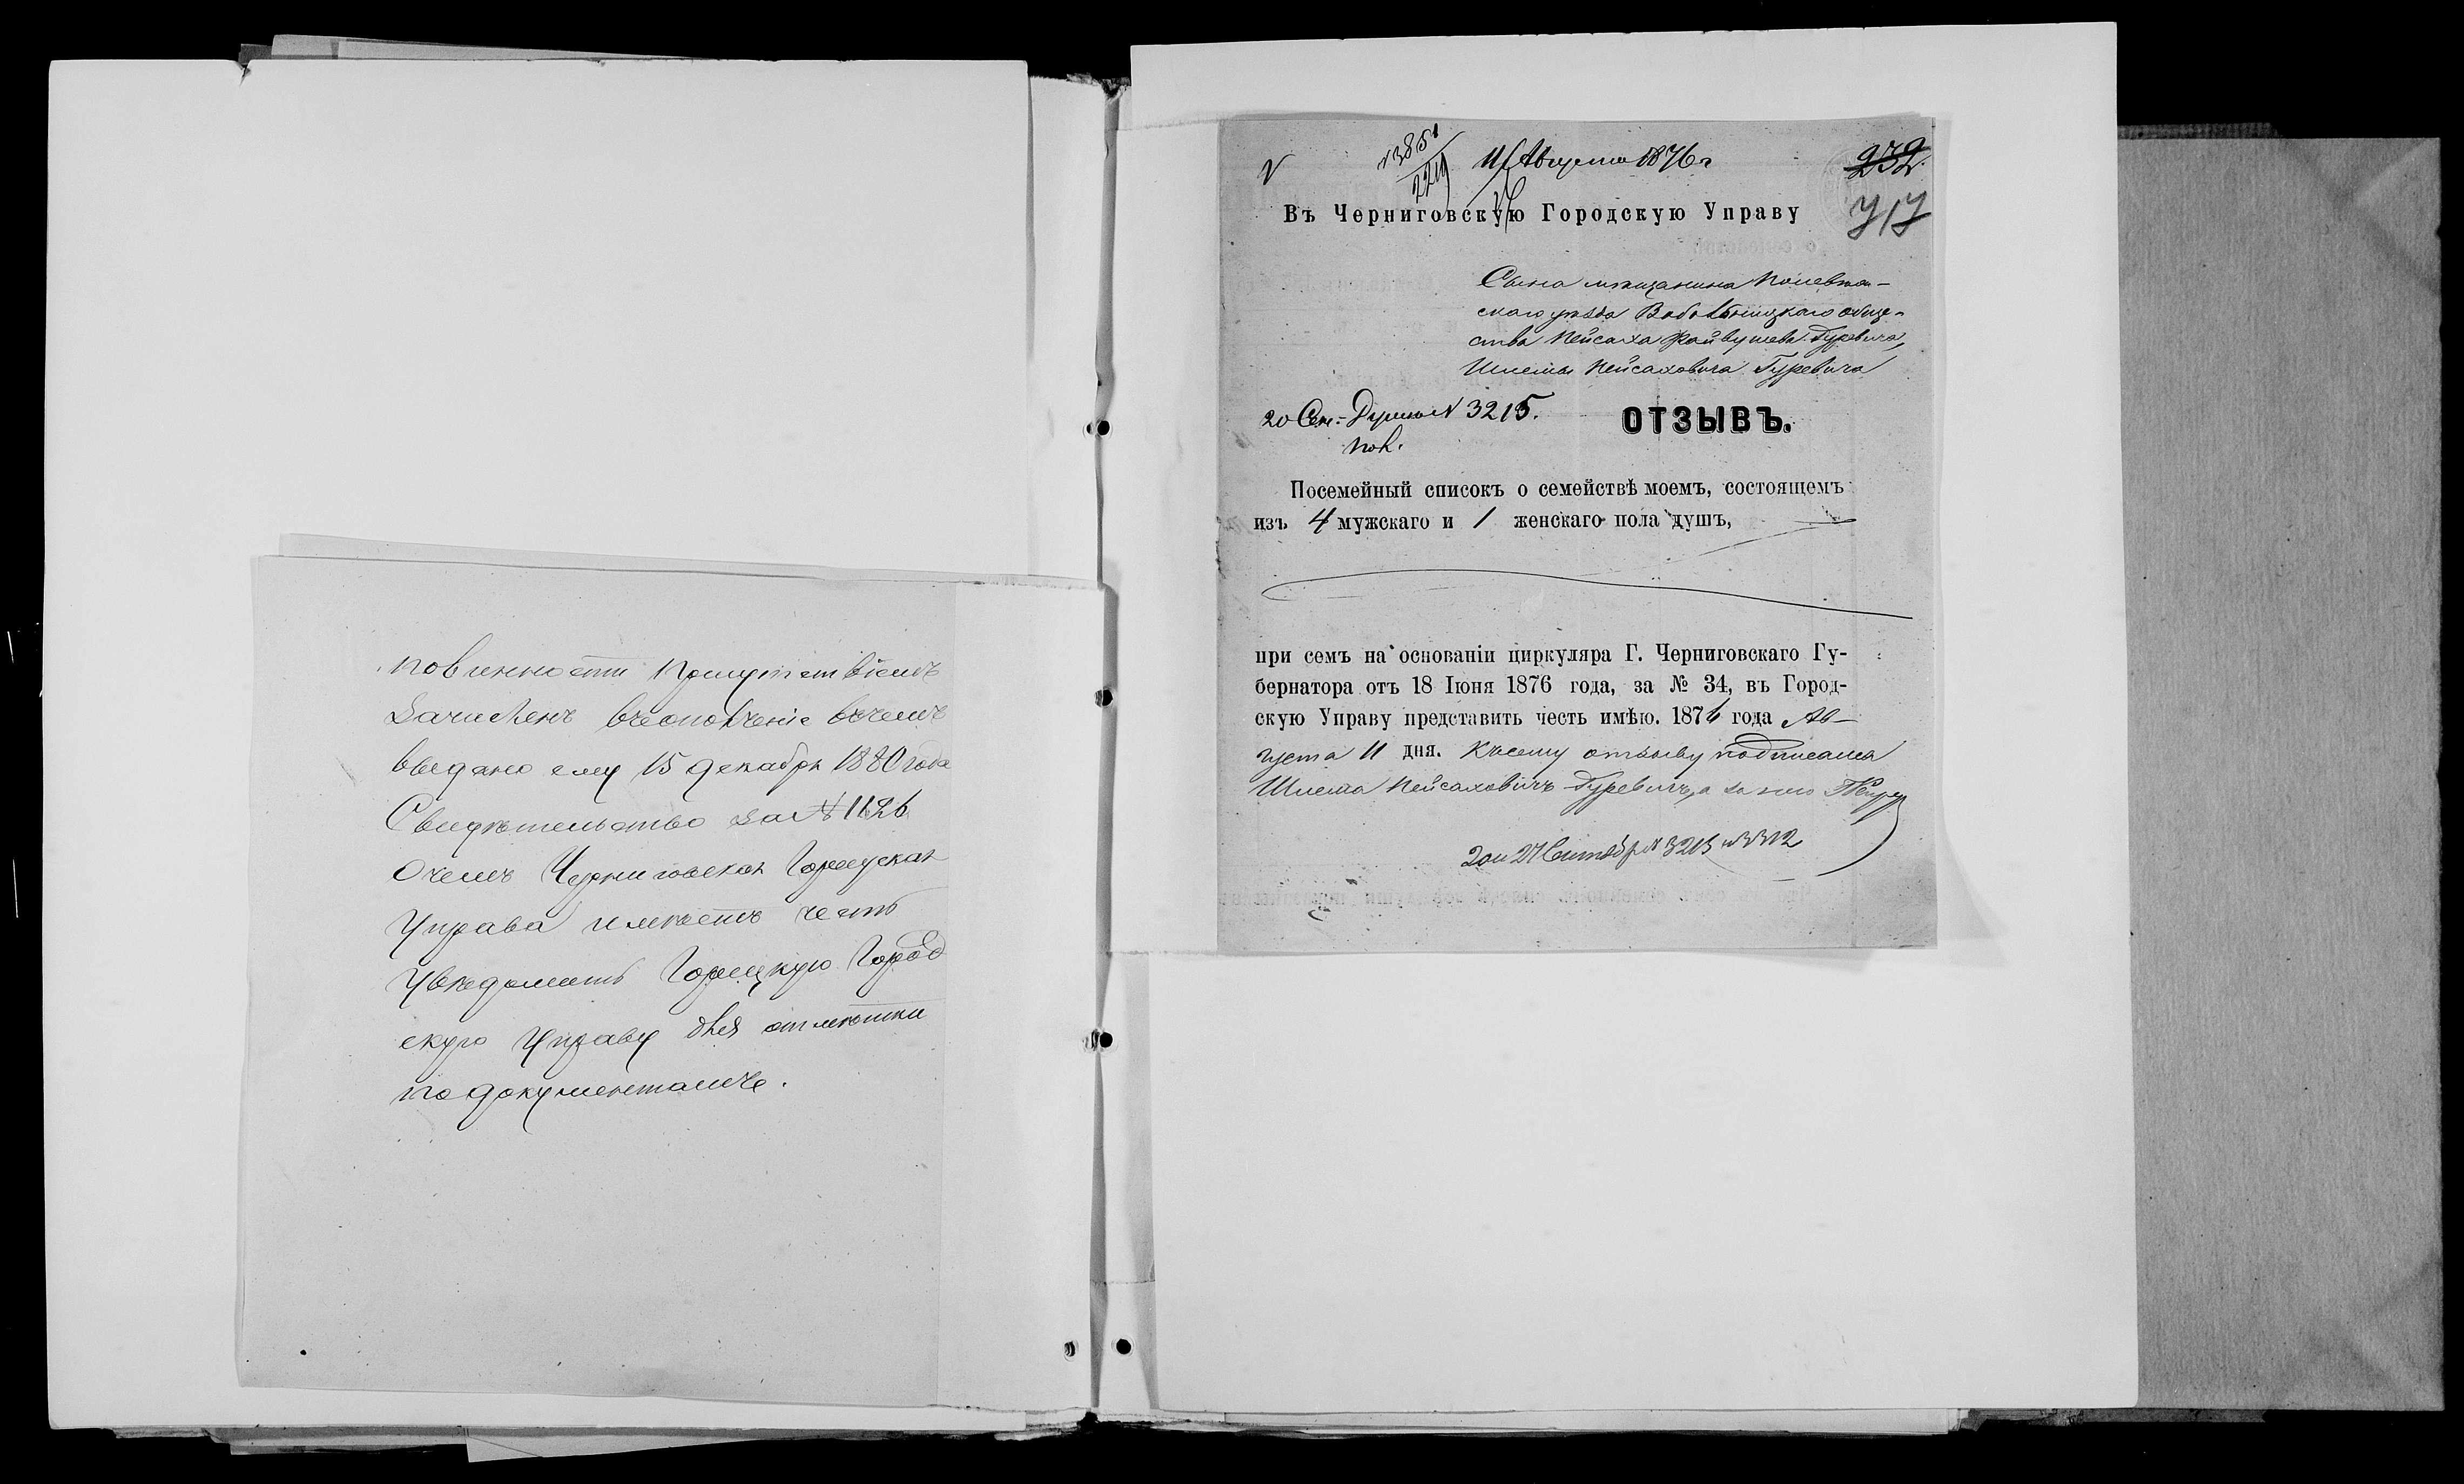 повинности присутствіемъ
Зачисленъ въ ополченіе въ чемъ
выдано ему 15 декабря 1880 года
Свидѣтельство за № 1126
О чемъ Черниговская Городская
Управа имѣетъ честь
Увѣдомить Горецкую Город
скую Управу для отмѣтки
по документамъ.
11 Августа 1876 г
232
717
Въ Черниговскую Городскую Управу
Сына мѣщанина
скаго уѣзда обще-
ства Пейсаха Файвушева Гуревича,
Шлемы Пейсаховича Гуревича
20 Сен. № 3215.
ОТЗЫВЪ.
Посемейный списокъ о семействѣ моемъ, состоящемъ
изъ 4 мужскаго и 1 женскаго пола душъ,
при семъ на основаніи циркуляра Г. Черниговскаго Гу-
бернатора отъ 18 Іюня 1876 года, за № 34, въ Город-
скую Управу представить честь имѣю. 1876 года Ав-
густа 11 дня. Къ сему отзыву подписался
Шлема Пейсаховичъ Гуревичъ, а за него
20 и 27 Сентября № 3215 и 3312